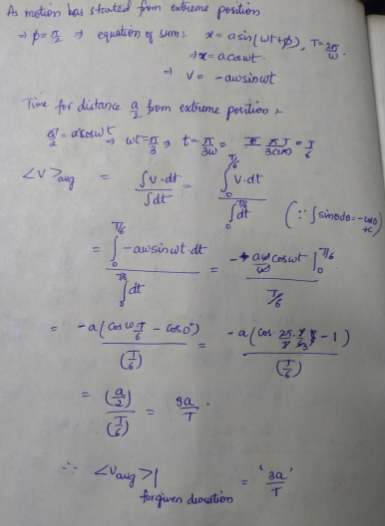 As motion has strated from extreme position
→ φ = π/2 ⇒ equation of SHM: x = a sin(ωt+φ), T = 2π/ω
⇒ x = a cosωt
⇒ v = -aω sinωt
Time for distance a/2 from extreme position :-
a/2 = a cosωt ⇒ ωt = π/3 ⇒ t = π/3ω = T/6
<V>avg = ∫v·dt / ∫dt = ∫₀^(T/6) v·dt / ∫₀^(T/6) dt (∵ ∫sinθdθ = -cosθ +c)
= ∫₀^(T/6) -aω sinωt·dt / ∫₀^(T/6) dt = -aω/ω cosωt |₀^(T/6) / T/6
= -a(cos ω T/6 - cos0°) / (T/6) = -a(cos 2π/T · T/6 - 1) / (T/6)
= (a/2) / (T/6) = 3a/T .
∴ <Vavg>| for given duration = '3a/T'